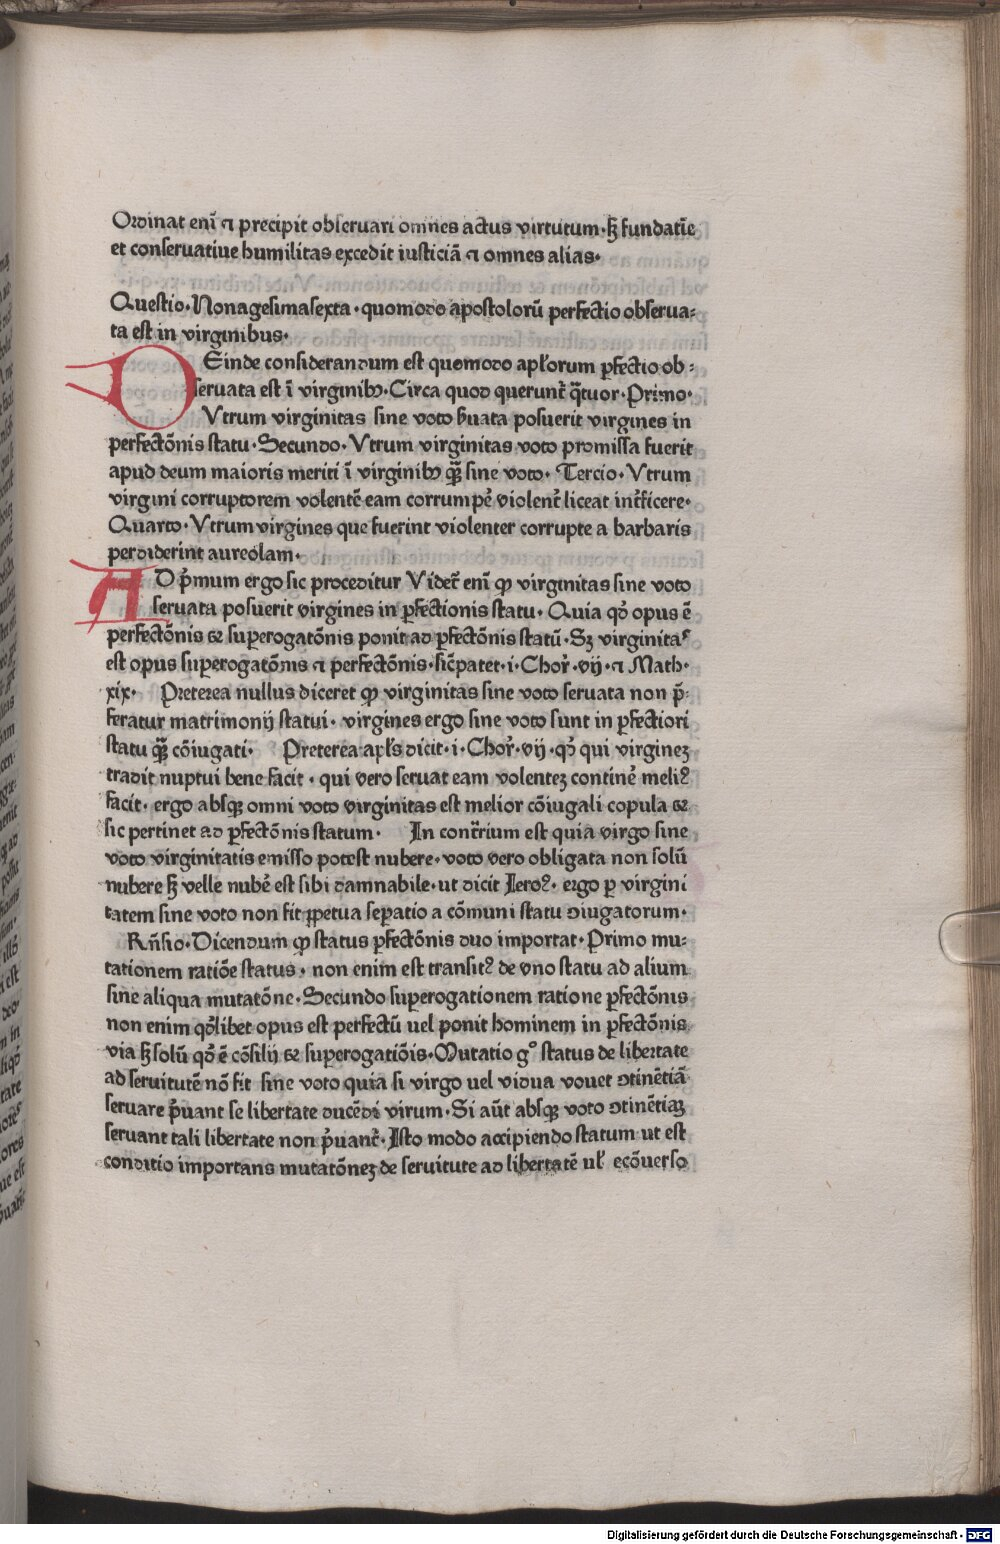 Ordinat enī ⁊ precipit obseruari omnes actus virtutum·sꝫ fundatīe
et conseruatiue humilitas excedit iusticiā ⁊ omnes alias·
Questio·Nonagesimasexta·quomodo apostolorū perfectio obserua-
ta est in virginibus·
DEinde considerandum est quomodo apl'orum ꝑfectio ob-
seruata est ī virginibꝰ·Circa quod querunt' q̄tuor·Primo·
Vtrum virginitas sine voto s̄uata posuerit virgines in
perfectōnis statu·Secundo·Vtrum virginitas voto promissa fuerit
apud deum maioris meriti ī virginibꝰ qꝫ̄ sine voto·Tercio·Vtrum
virgini corruptorem volentē eam corrumpe' violent' liceat int'ficere·
Quarto·Vtrum virgines que fuerint violenter corrupte a barbaris
perdiderint aureolam·
AD p'mum ergo sic proceditur Videt' enī ꝙ virginitas sine voto
seruata posuerit virgines in ꝑfectionis statu·Quia qd' opus ē
perfectōnis ⁊ suꝑerogatōnis ponit ad ꝑfectōnis statū·Sꝫ virginitas
est opus suꝑerogatōnis ⁊ perfectōnis·sic' patet·i·Chor'·vij·⁊ Math·
xix· Preterea nullus diceret ꝙ virginitas sine voto seruata non p̄-
feratur matrimonij statui·virgines ergo sine voto sunt in ꝑfectiori
statu qꝫ̄ cōiugati· Preterea apl's dicit·i·Chor'·vij·qd' qui virgineꝫ
tradit nuptui bene facit·qui vero seruat eam volenteꝫ contine' meliꝰ
facit·ergo absqꝫ omni voto virginitas est melior cōiugali copula ⁊
sic pertinet ad ꝑfectōnis statum· In cont'rium est quia virgo sine
voto virginitatis emisso potest nubere·voto vero obligata non solū
nubere sꝫ velle nube' est sibi damnabile·ut dicit Ieroꝰ·ergo ꝑ virgini
tatem sine voto non fit ꝓpetua seꝑatio a cōmuni statu ꝯiugatorum·
Rn̄sio·Dicendum ꝙ status ꝑfectōnis duo importat·Primo mu-
tationem ratiōe status·non enim est transitꝰ de vno statu ad alium
sine aliqua mutatōne·Secundo suꝑerogationem ratione ꝑfectōnis
non enim qd'libet opus est perfectū uel ponit hominem in ꝑfectōnis
via sꝫ solū qd' ē cōsilij ⁊ suꝑerogatiōis·Mutatio gº status de libertate
ad seruitutē nō fit sine voto quia si virgo uel vidua vouet ꝯtinētiā
seruare p'uant se libertate ducēdi virum·Si aūt absqꝫ voto ꝯtinētiaꝫ
seruant tali libertate non p'uant'·Isto modo accipiendo statum ut est
conditio importans mutatōneꝫ de seruitute ad libertatē ul' ecōuerso
Digitalisierung gefördert durch die Deutsche Forschungsgemeinschaft - DFG